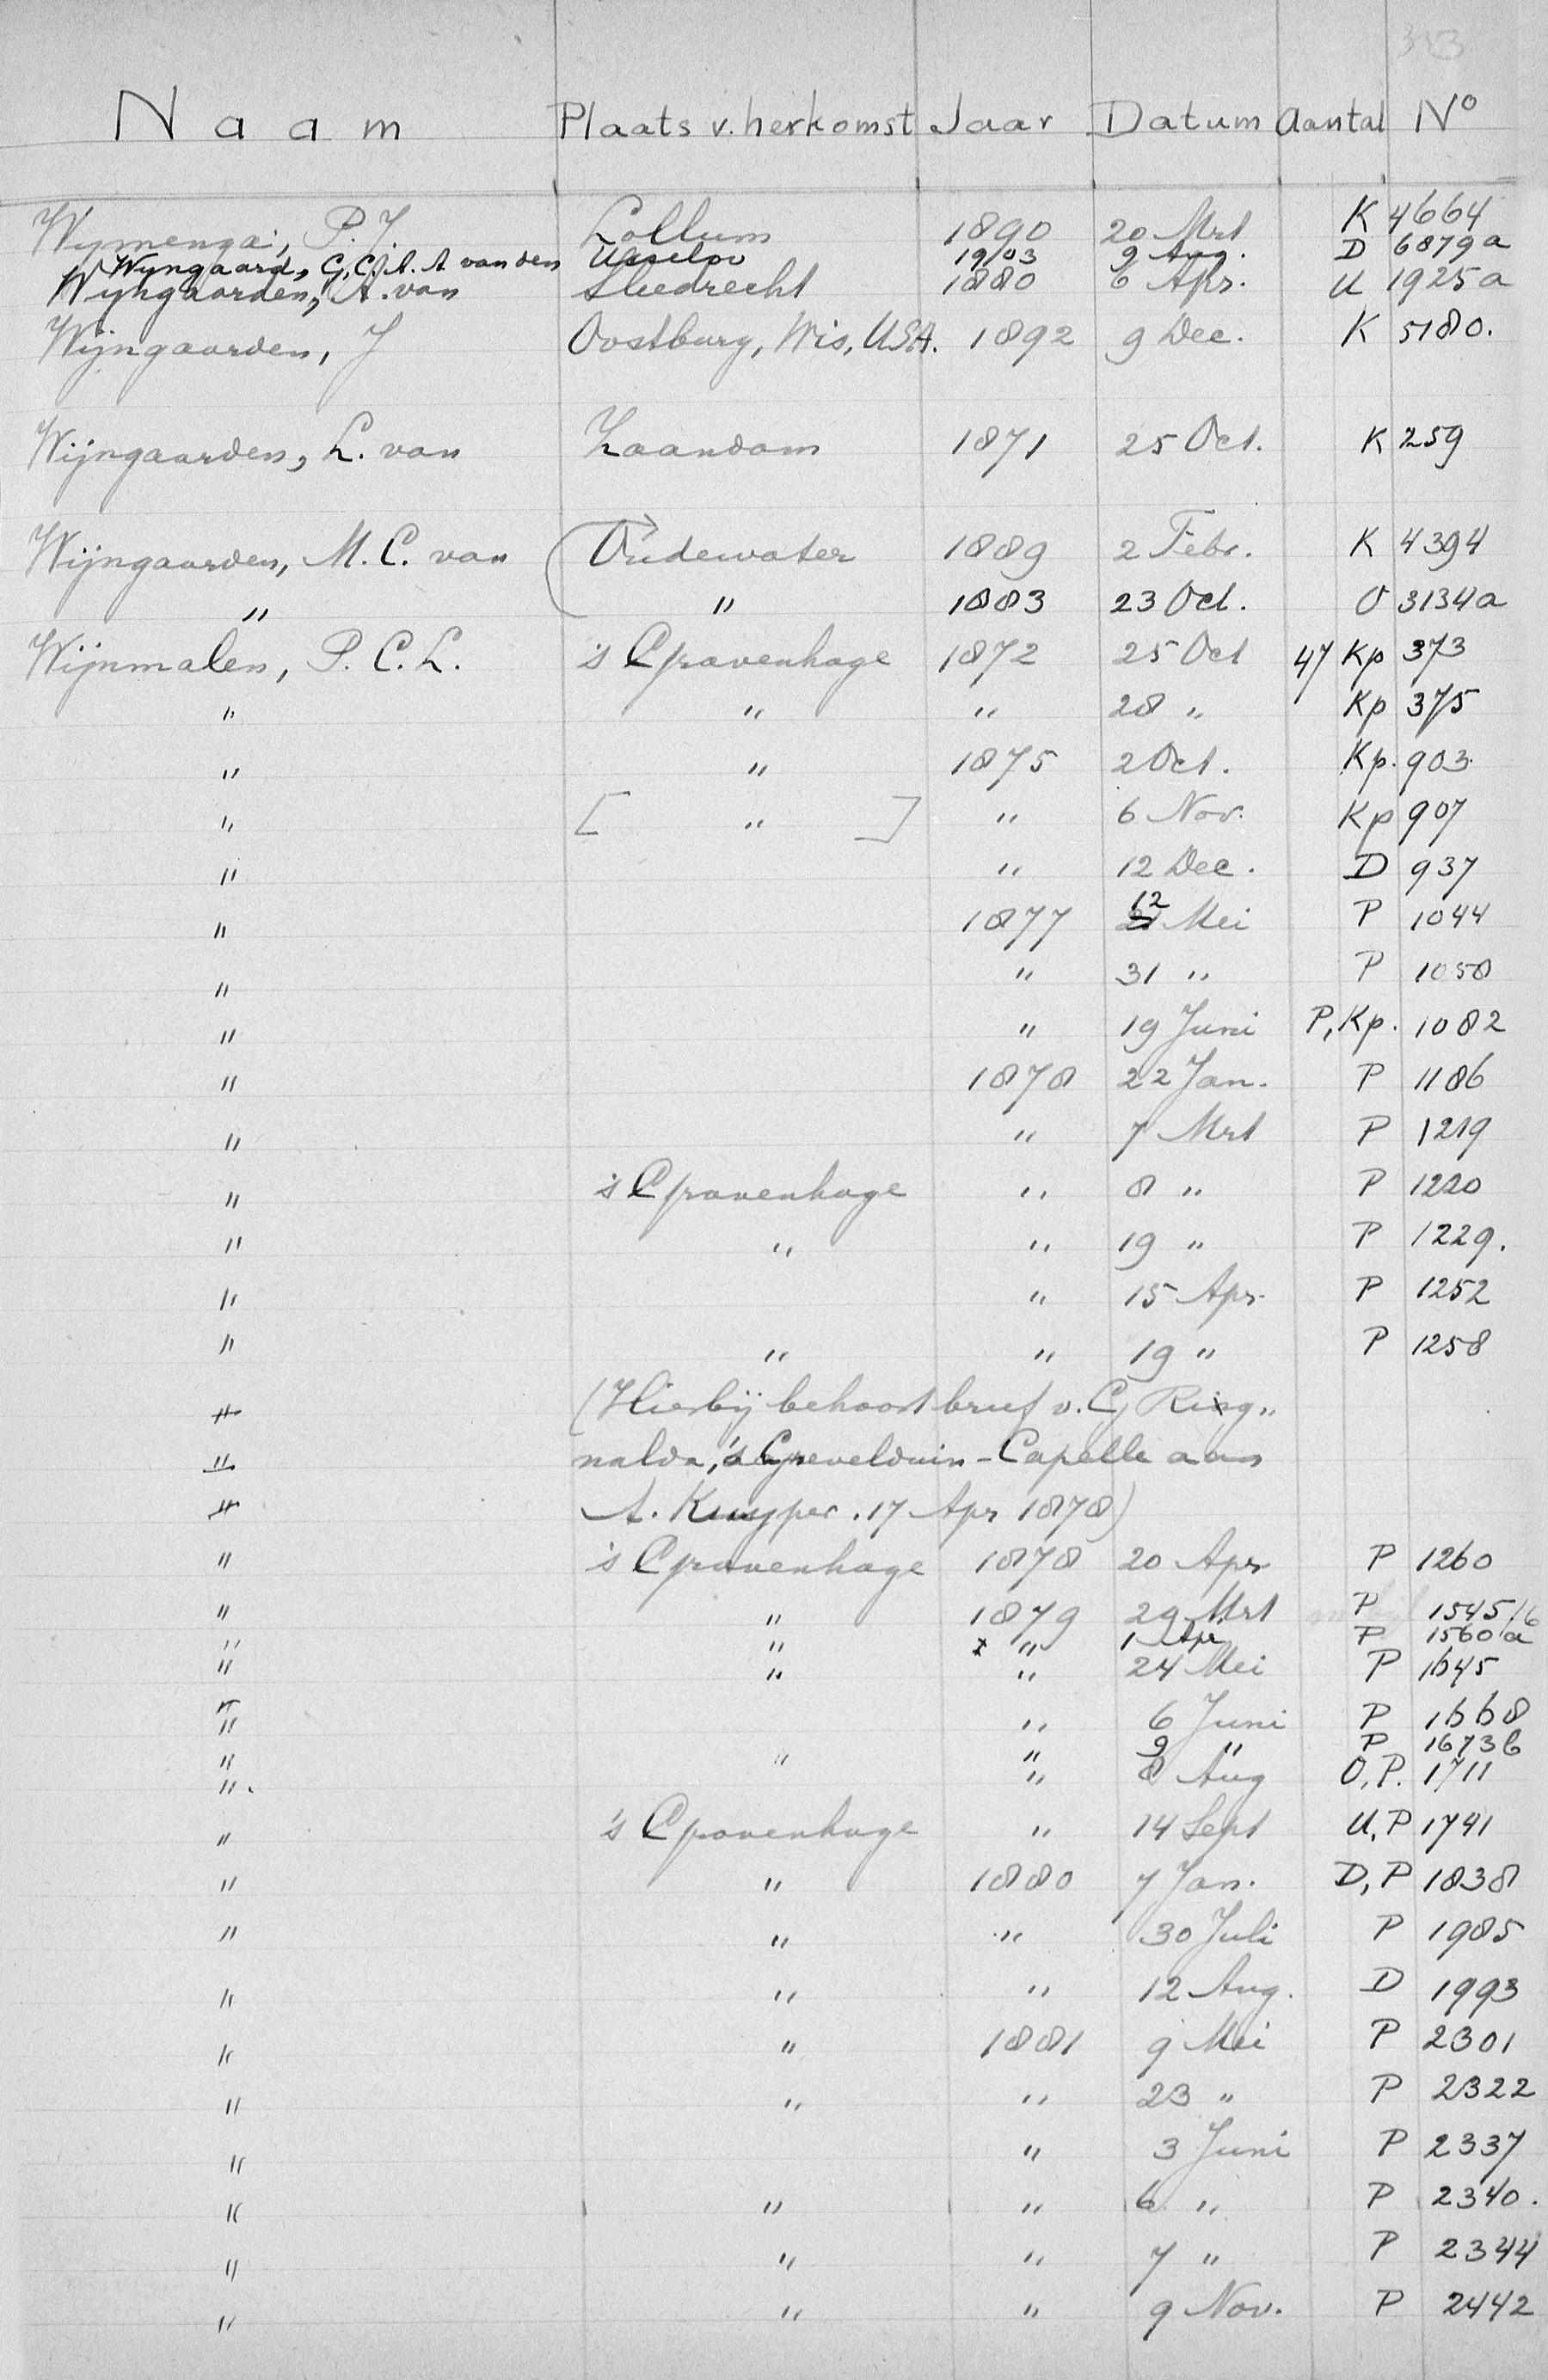 353
Naam Plaats v. herkomst Jaar Datum Aantal No
Wymenga, P. J. Lollum 1890 20 Mrt K 4664
Wyngaard, G. C. A. A van den 1903 9 Aug. D 6879a
Wyngaarden, A. van Sliedrecht 1880 6 Apr. U 1925a
Wijngaarden, J Oostburg, Wis, USA. 1892 9 Dec. K 5180.
Wijngaarden, L. van Zaandam 1871 25 Oct. K 259
Wijngaarden, M. C. van Oudewater 1889 2 Febr. K 4394
" " 1883 23 Oct. O 3134a
Wijnmalen, P. C. L. 's Gravenhage 1872 25 Oct 47 Kp 373
" " " 28 " Kp 375
" " 1875 2 Oct. Kp. 903
" [ " ] " 6 Nov. Kp 907
" " 12 Dec. D 937
" 1877 12 Mei P 1044
" " 31 " P 1058
" " 19 Juni P, Kp. 1082
" 1878 22 Jan. P 1186
" " 7 Mrt P 1219
" 's Gravenhage " 8 " P 1220
" " " 19 " P 1229.
" " 15 Apr. P 1252
" " " 19 " P 1258
" (Hierbij behoort brief v. G Ring"
" nalda, 's Grevelduin-Capelle aan
" A. Kuyper. 17 Apr 1878)
" 's Gravenhage 1878 20 Apr P 1260
" " 1879 29 Mrt P 1545/6
" " x " 1 Apr P 1560a
" " " 24 Mei P 1645
" " 6 Juni P 1668
" " " 9 " P 1673b
" " 8 Aug O, P. 1711
" 's Gravenhage " 14 Sept U, P 1741
" " 1880 7 Jan. D, P 1838
" " " 30 Juli P 1985
" " " 12 Aug. D 1993
" " 1881 9 Mei P 2301
" " " 23 " P 2322
" " 3 Juni P 2337
" " " 6 " P 2340.
" " " 7 " P 2344
" " " 9 Nov. P 2442